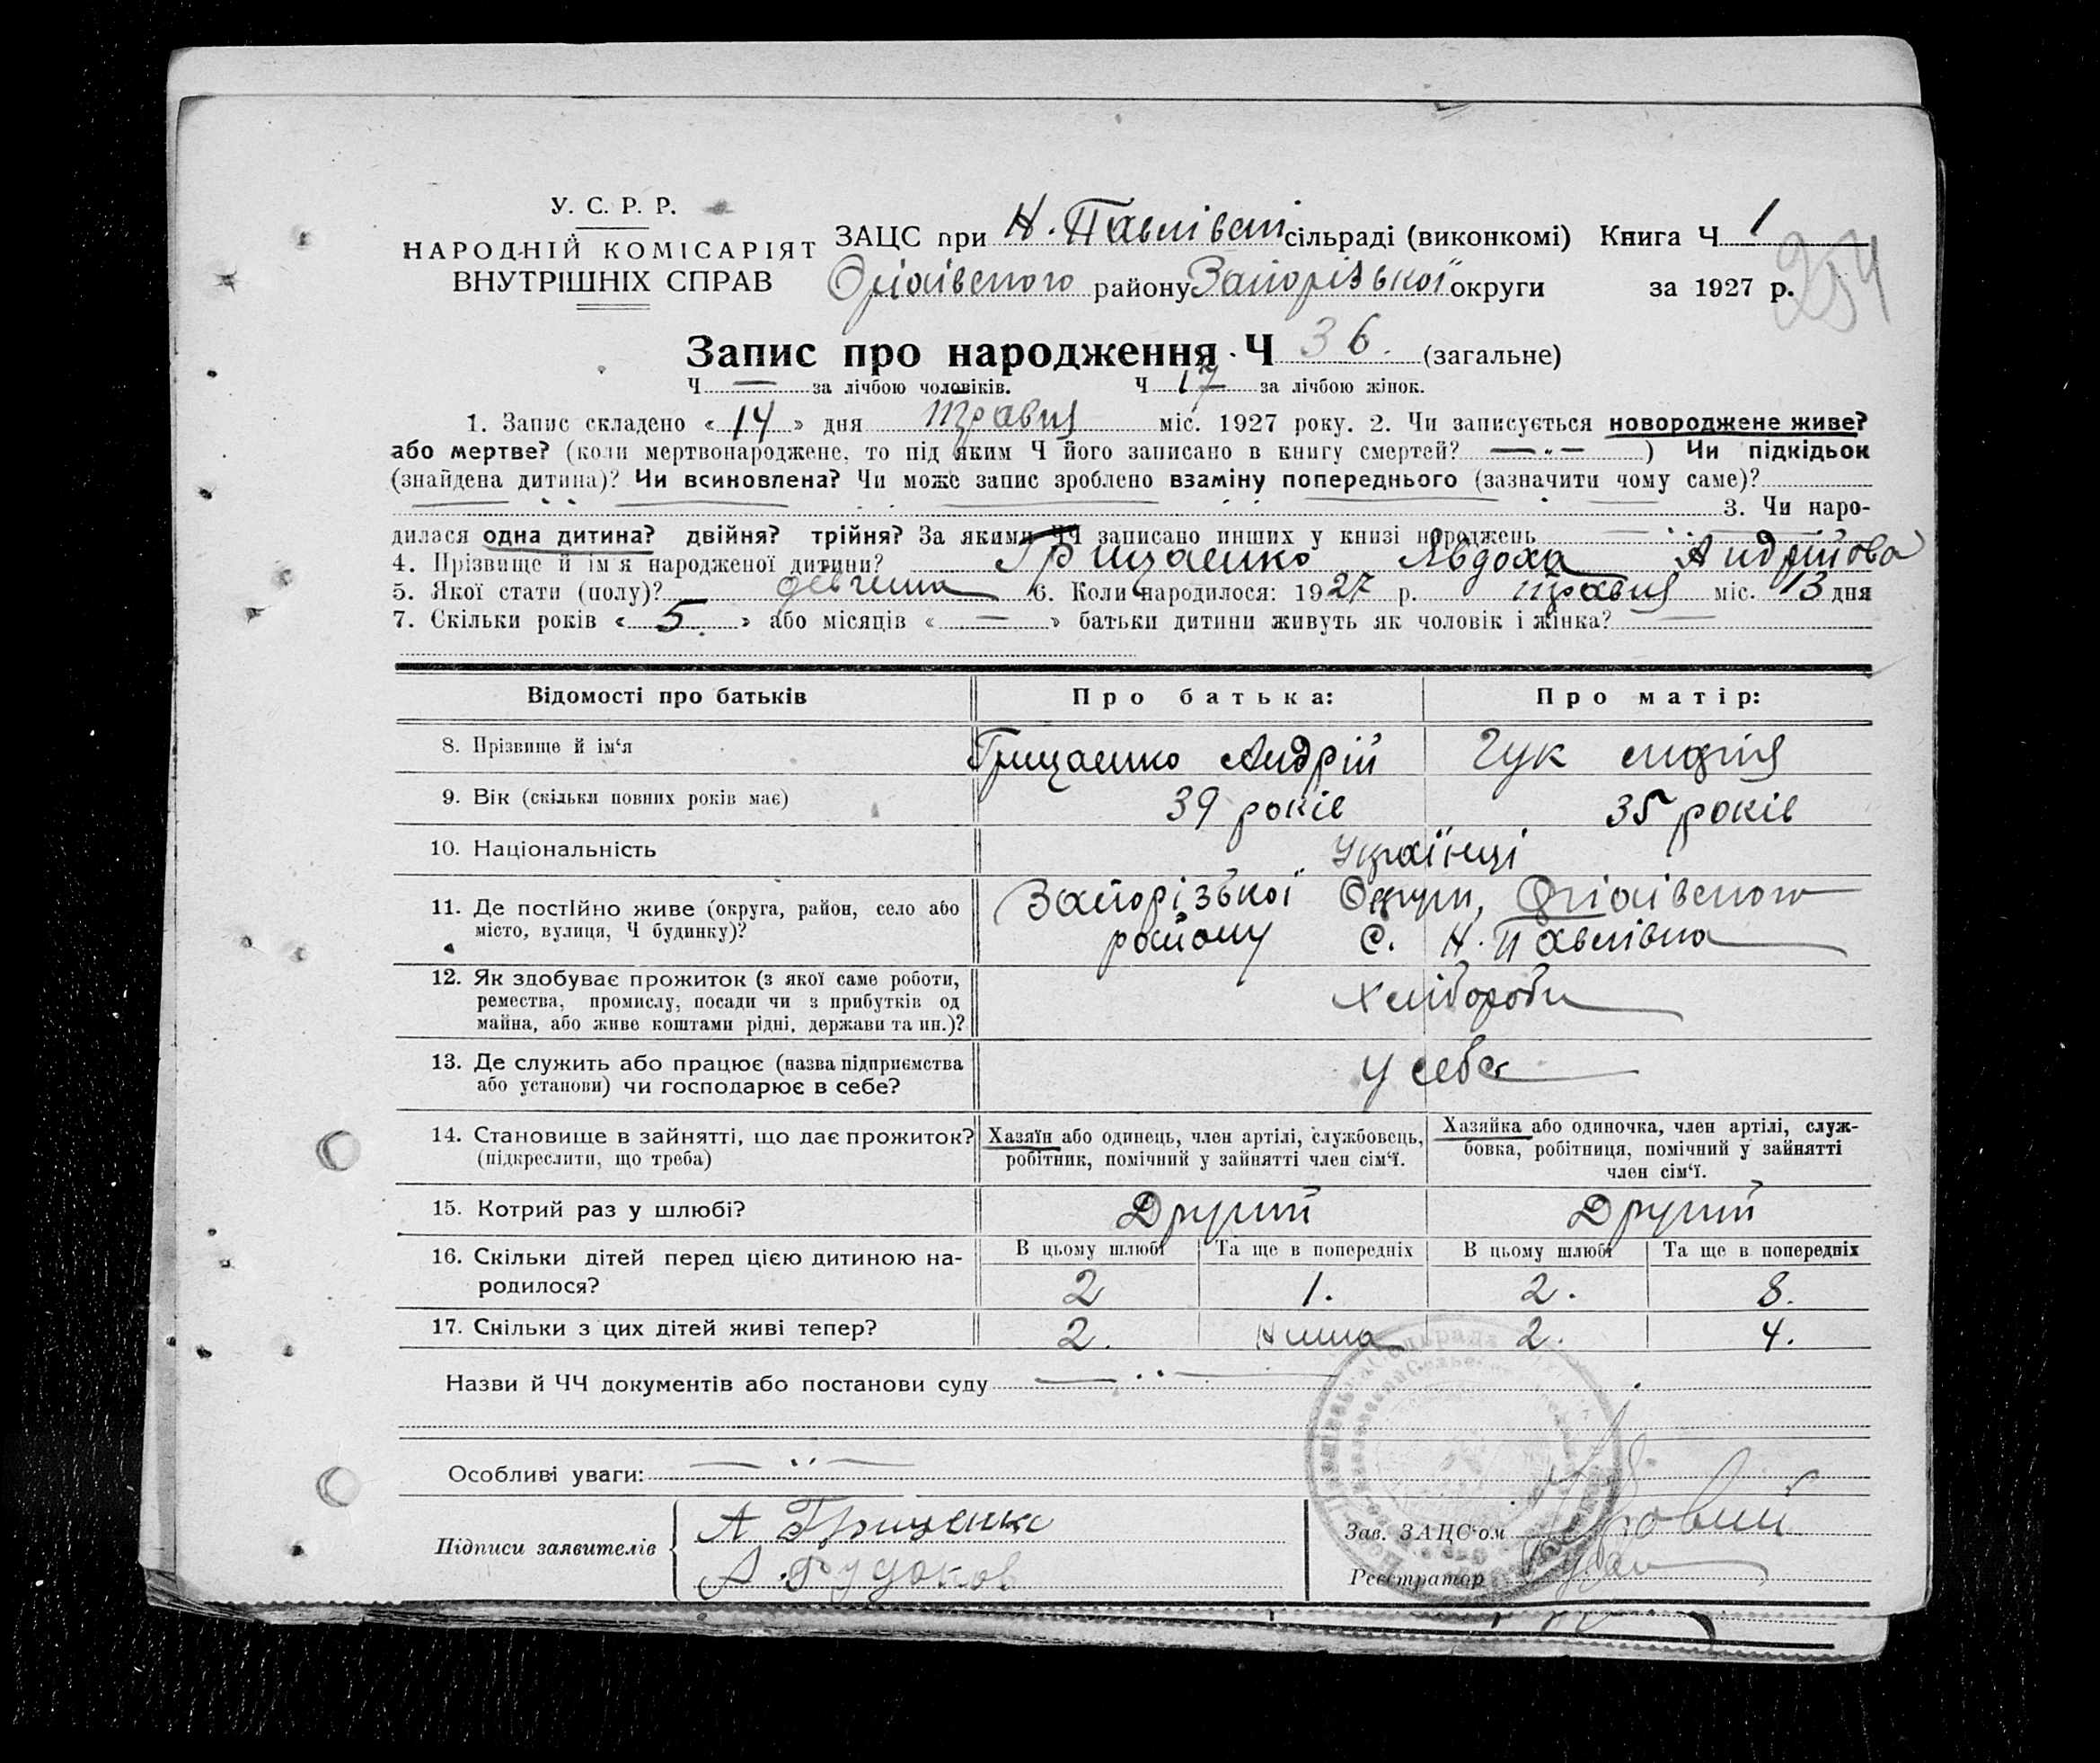 У. С. Р. Р.
НАРОДНІЙ КОМІСАРІЯТ
ВНУТРІШНІХ СПРАВ
ЗАЦС при Н. Павлівській сільраді (виконкомі) Книга Ч 1
Оріхівського району Запорізької округи за 1927 р.
254
Запис про народження Ч 36. (загальне)
Ч — за лічбою чоловіків. Ч 17 за лічбою жінок.
1. Запис складено « 14 » дня травня міс. 1927 року. 2. Чи записується новороджене живе?
або мертве? (коли мертвонароджене, то під яким Ч його записано в книгу смертей? —"— ) Чи підкідьок
(знайдена дитина)? Чи всиновлена? Чи може запис зроблено взаміну попереднього (зазначити чому саме)?
3. Чи наро-
дилася одна дитина? двійня? трійня? За якими ЧЧ записано инших у книзі народжень
4. Прізвище й ім'я народженої дитини? Грицаенко Явдоха Андрійова
5. Якої стати (полу)? девчина 6. Коли народилося: 1927 р. травня міс. 13 дня
7. Скільки років « 5. » або місяців « — » батьки дитини живуть як чоловік і жінка? —
Відомості про батьків Про батька: Про матір:
8. Прізвище й ім'я Грицаенко Андрій Гук
9. Вік (скільки повних років має) 39 років 35 років
10. Національність Українці
11. Де постійно живе (округа, район, село або Запорізької Округи, Оріхівського
місто, вулиця, Ч будинку)? району С. Н. Павлівка
12. Як здобуває прожиток (з якої саме роботи, Хлібороби
ремества, промислу, посади чи з прибутків од
майна, або живе коштами рідні, держави та ин.)?
13. Де служить або працює (назва підприємства У себе
або установи) чи господарює в себе?
14. Становище в зайнятті, що дає прожиток? Хазяїн або одинець, член артілі, службовець, Хазяйка або одиночка, член артілі, служ-
(підкреслити, що треба) робітник, помічний у зайнятті член сім'ї. бовка, робітниця, помічний у зайнятті
член сім'ї.
15. Котрий раз у шлюбі? Другий Другий
16. Скільки дітей перед цією дитиною на- В цьому шлюбі Та ще в попередніх В цьому шлюбі Та ще в попередніх
родилося? 2 1. 2. 8.
17. Скільки з цих дітей живі тепер? 2. Нима 2. 4.
Назви й ЧЧ документів або постанови суду
Особливі уваги:
Підписи заявителів А Грищенко
А. Рудаков
Зав. ЗАЦС'ом
Реєстратор